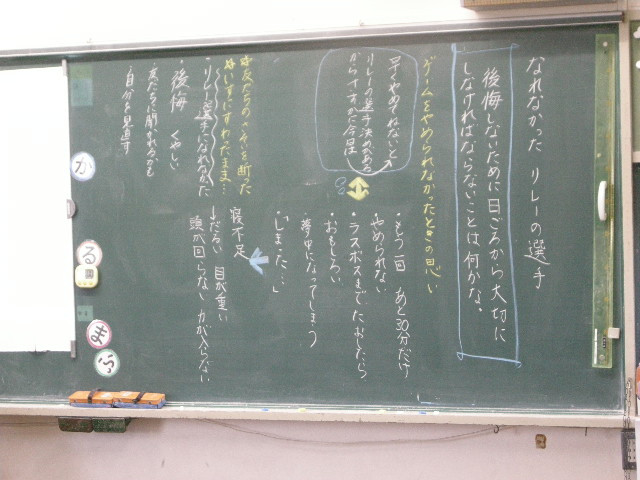 なれなかった リレーの選手
後悔しないために日ごろから大切に
しなければならないことは何かな。
ゲームをやめられなかったときの思い
早くやめてねないと
リレーの選手決めがある
からさすがに今日は
・もう一回 あと30分だけ
やめられない
・ラスボスまでたおしたら
・おもしろい
・夢中になってしまう
・「しまった…」
寝不足
↓だるい 目が重い
頭が回らない 力が入らない
友だちの
を断った
いすにすわったまま…
・リレー選手になれなかった
・後悔 くやしい
・友だちを
・自分を見直す
か
る
ま
ふ